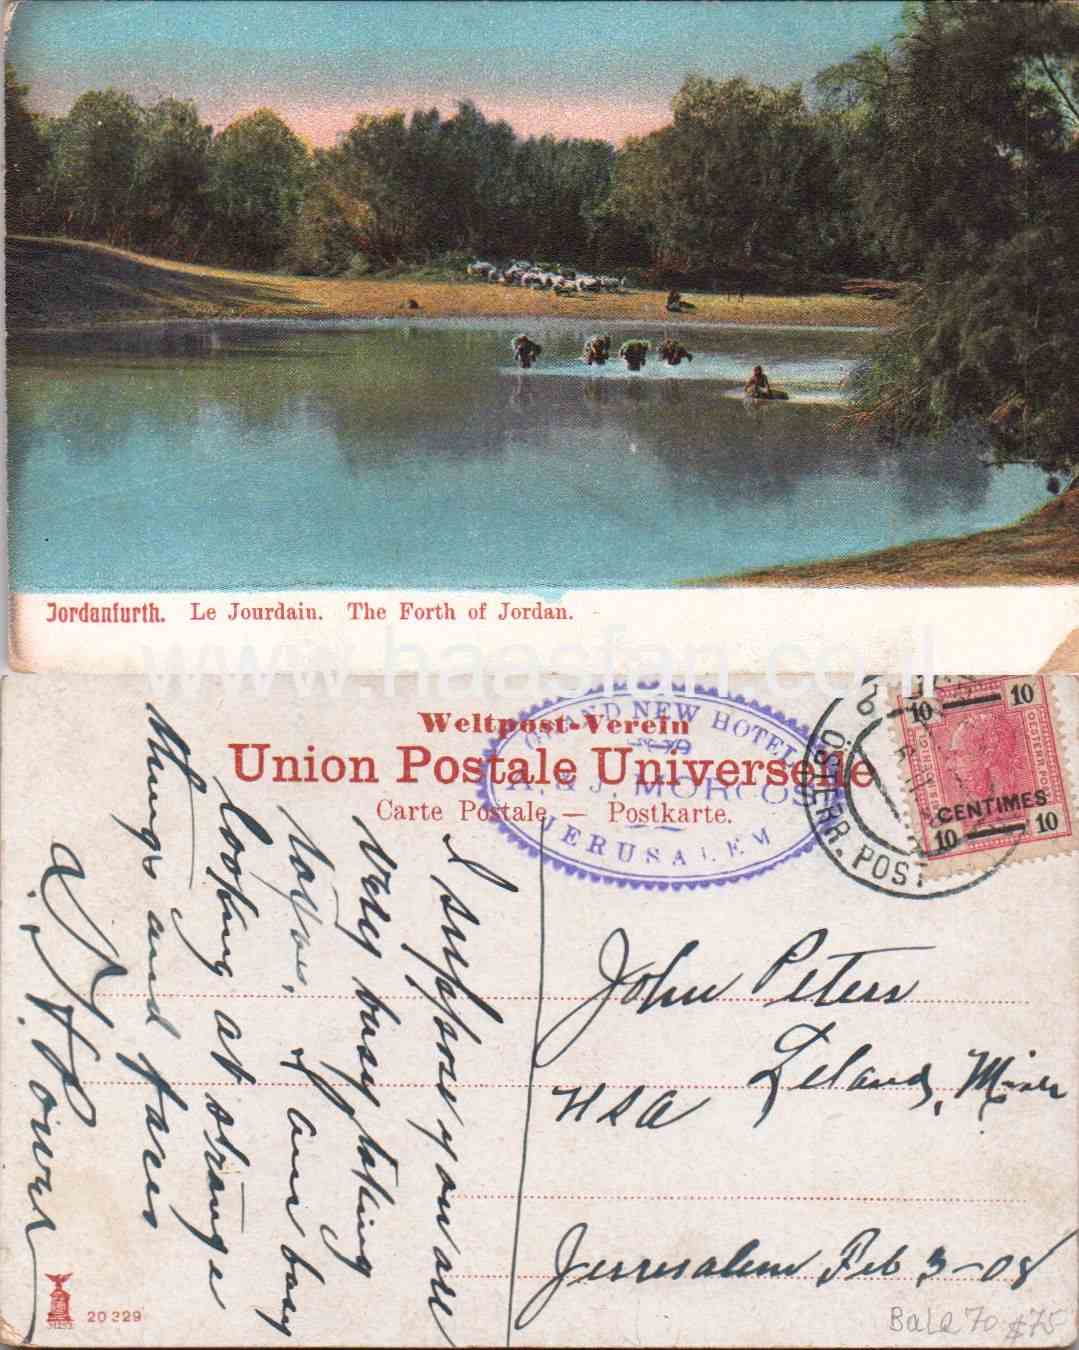 Jordanfurth. Le Jourdain. The Forth of Jordan.
www.haasfan.co.il
Weltpost-Verein
Union Postale Universelle
Carte Postale — Postkarte.
GRAND NEW HOTEL
A. & J. MORCOS
JERUSALEM
ÖSTERR. POST
10 10
CENTIMES
10 10
I suppose you are
very busy taking
I am busy
looking at strange
things and faces
John Peters
Leland, Miss
USA
Jerusalem Feb 3-08
20329
Bale 70 $75